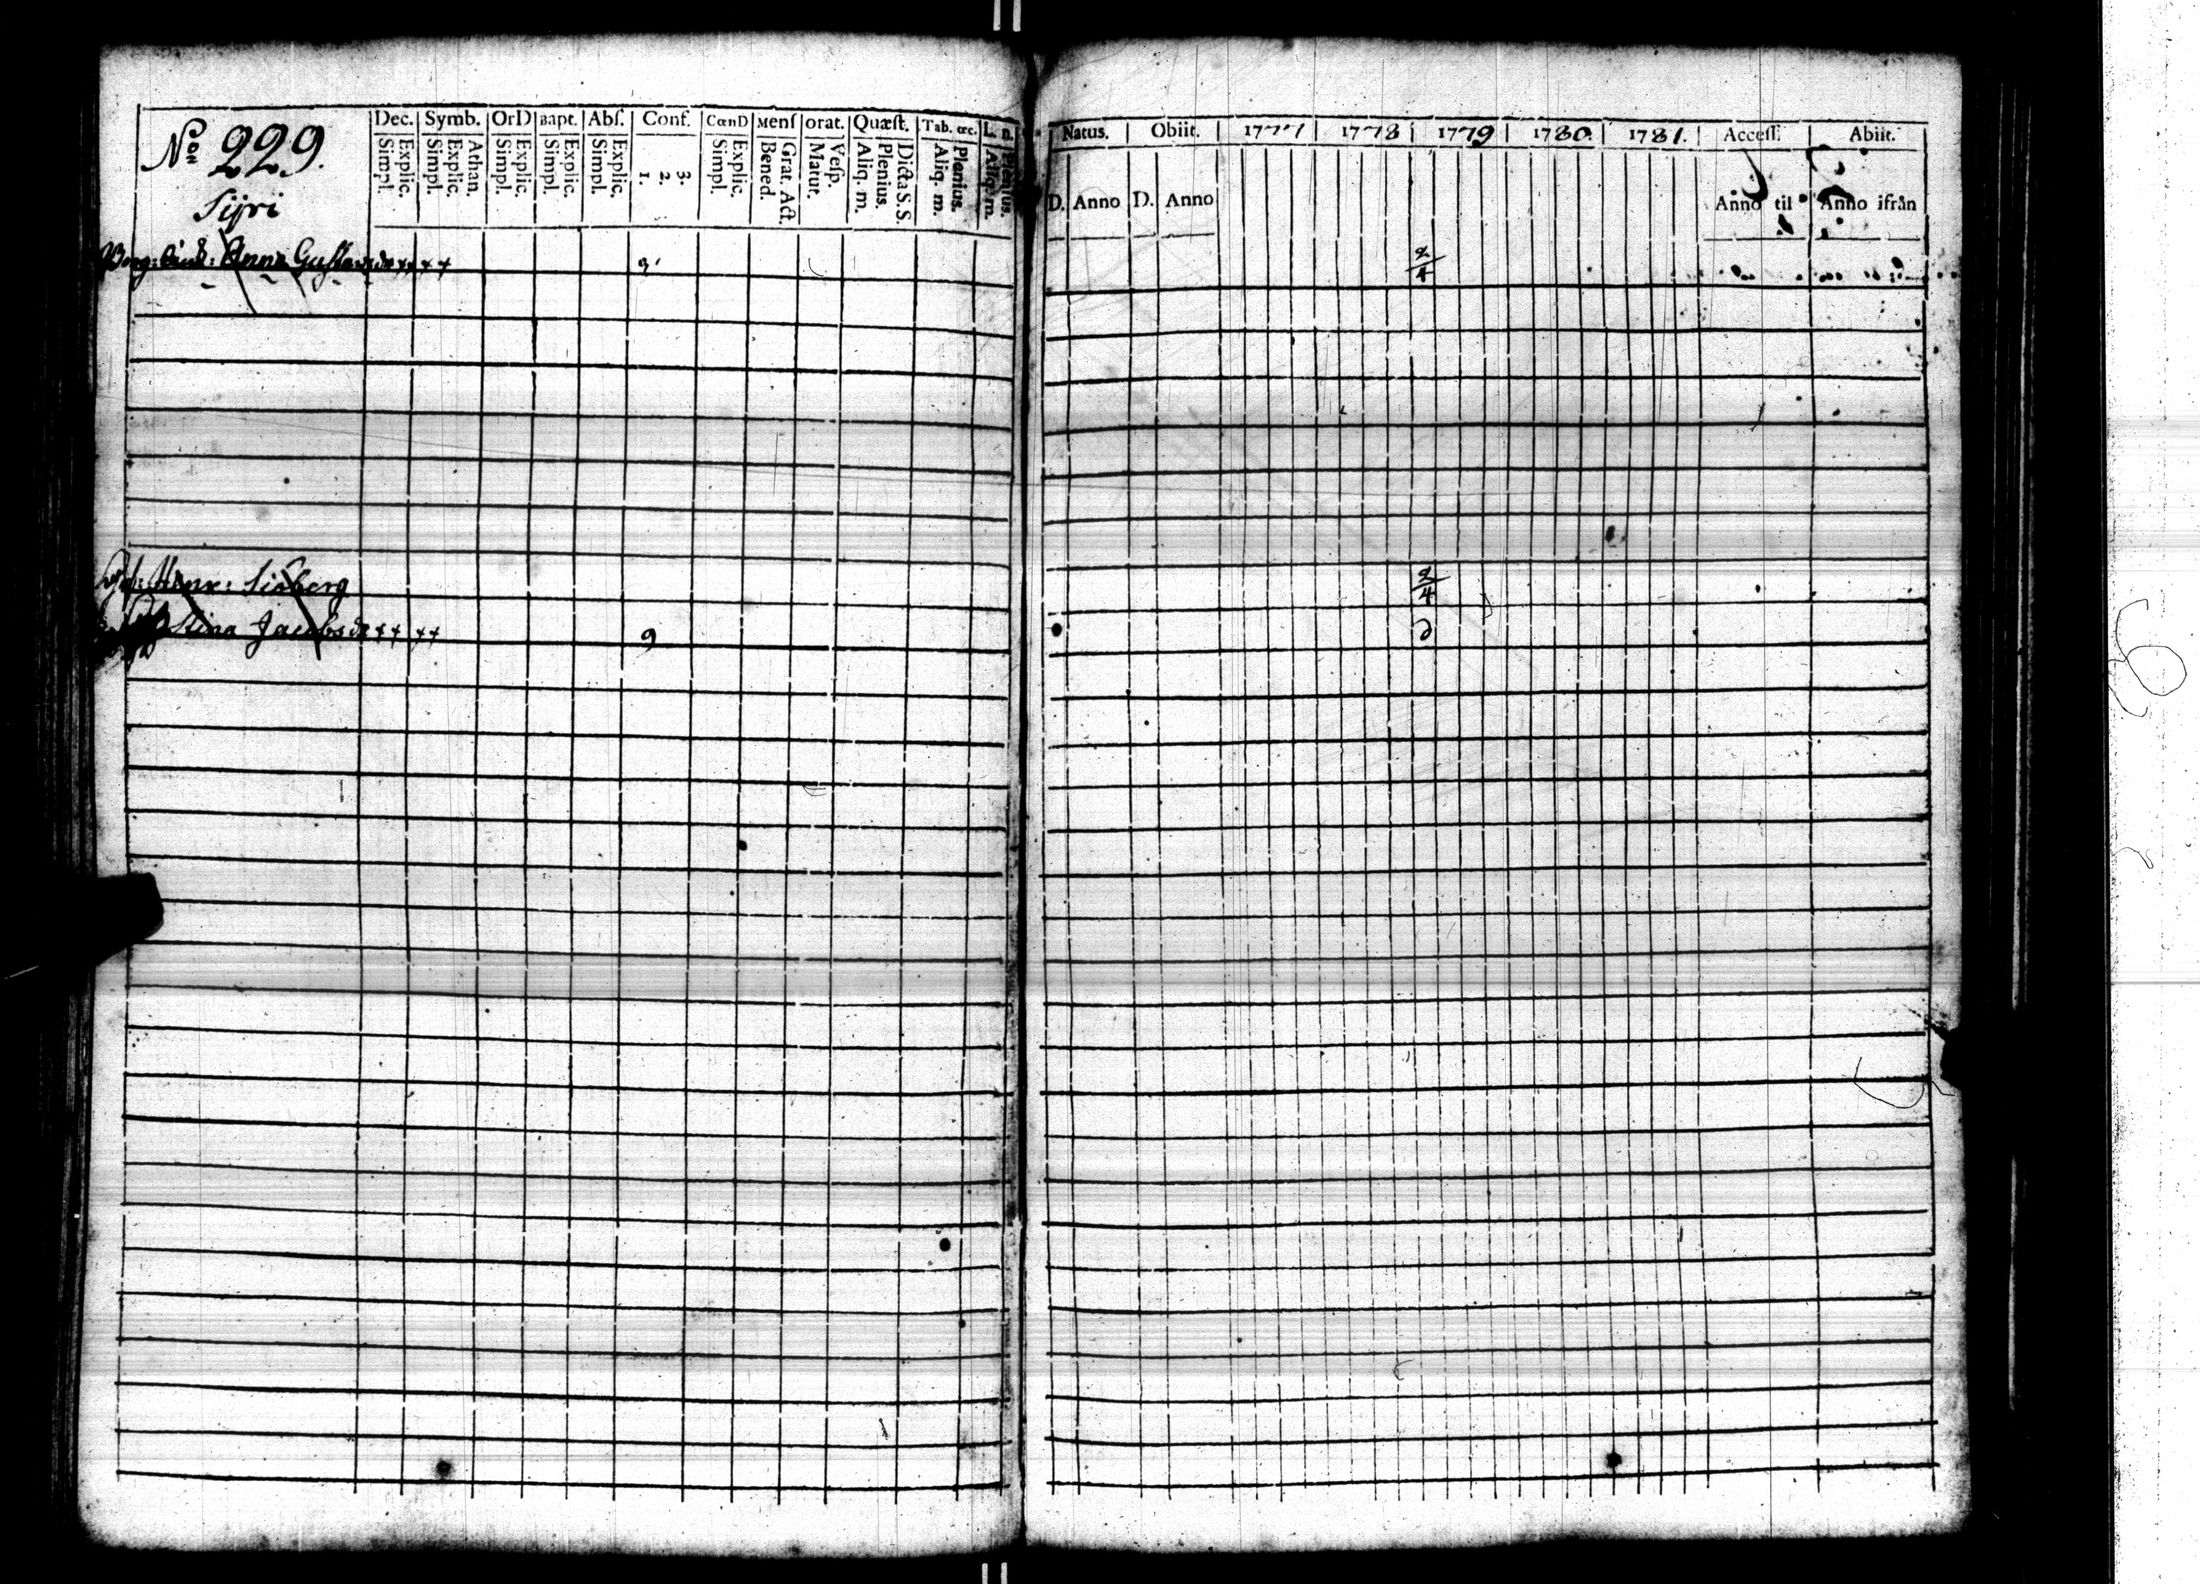 No 229.
Sijri
Dec. Symb. OrD Bapt. Abs. Conf. CœnD Mens orat. Quæst. Tab. œc. L. n.
Simpl. Explic. Simpl. Explic. Athan. Simpl. Explic. Simpl. Explic. Simpl. Explic. 1. 2. 3. Simpl. Explic. Bened. Grat. Act. Matut. Vesp. Aliq. m. Plenius. Dicta S.S. Aliq. m. Plenius. Aliq. m. Plenius.
Anna Gustavsdr ++ + + 9
Henr: Sirberg
Stina Jacobsdr ++ ++ 9
Natus. Obiit. 1777 1778 1779 1780. 1781. Access. Abiit.
D. Anno D. Anno Anno til Anno ifrån
2/4
2/4